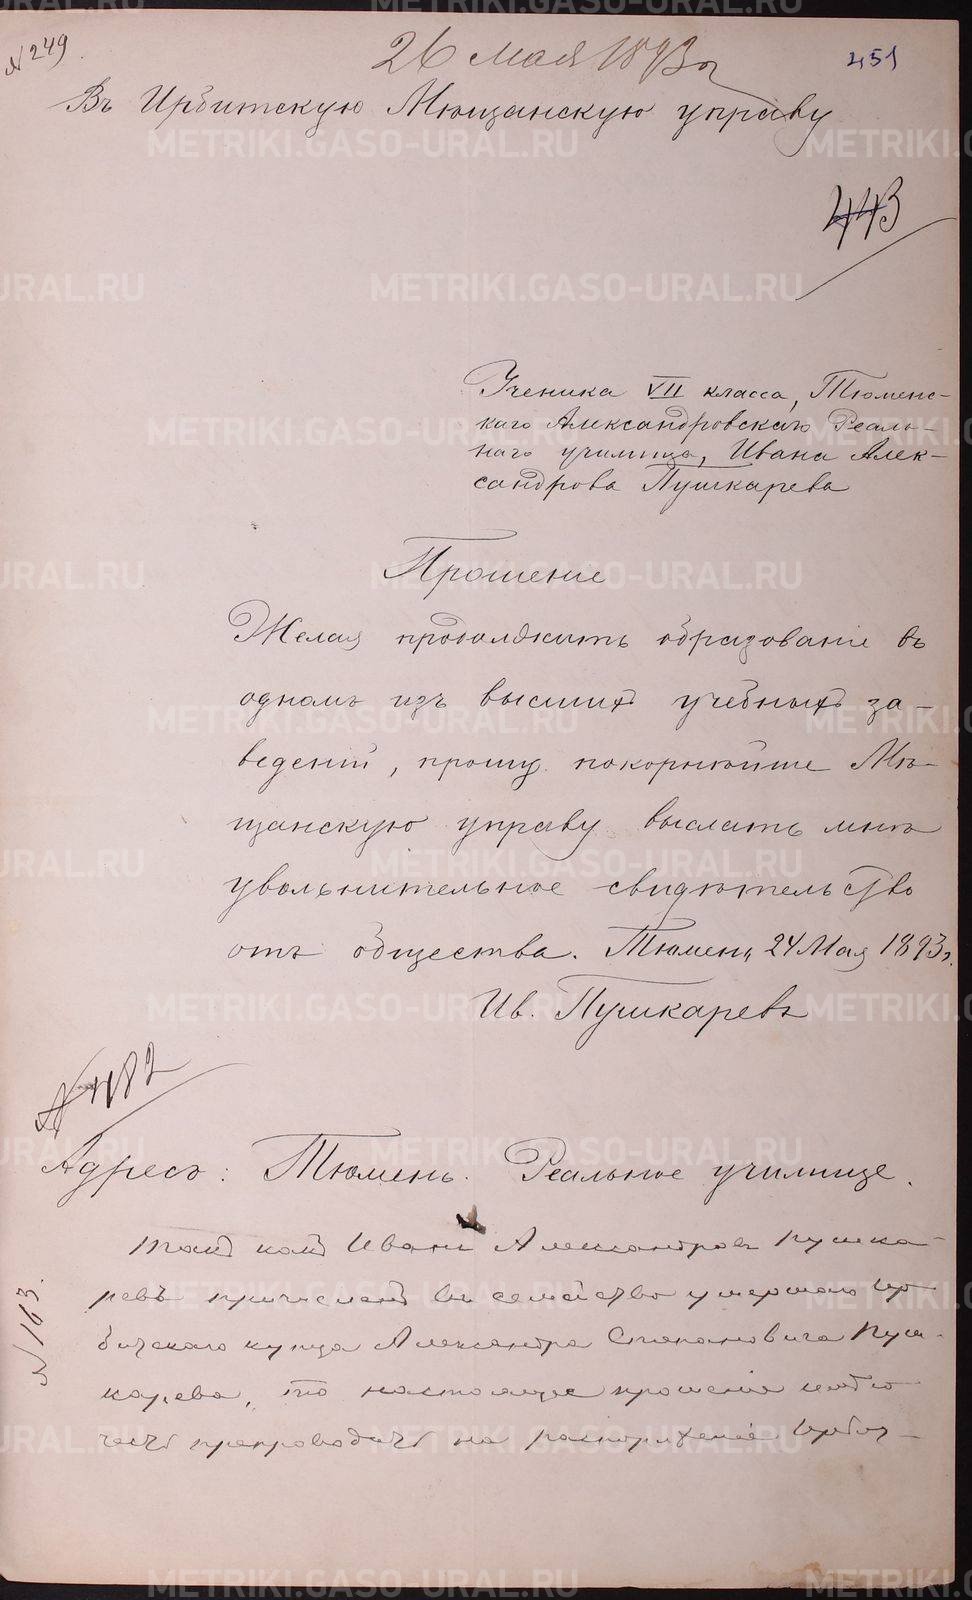 № 249
26 мая 1893 г
451
Въ Ирбитскую Мѣщанскую управу
443
Ученика VII класса, Тюменс-
каго Александровскаго Реаль-
наго училища, Ивана Алек-
сандрова Пушкарева
Прошеніе
Желая продолжить образованіе въ
одномъ изъ высшихъ учебныхъ за-
ведений, прошу покорнѣйше Мѣ-
щанскую управу выслать мнѣ
увольнительное свидѣтельство
отъ общества. Тюмень, 24 Мая 1893 г.
Ив. Пушкаревъ
№ 482
Адресъ: Тюмень. Реальное училище.
такъ какъ Иванъ Александровъ Пушка-
ревъ причисленъ въ семейство умершаго Ир-
битскаго купца Александра Степановича Пуш-
карева, то настоящее прошеніе имѣю
честь препроводить на распоряженіе Ирбит-
№ 163.
METRIKI.GASO-URAL.RU